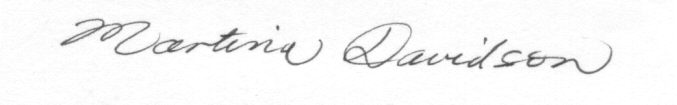 Martina Davidson